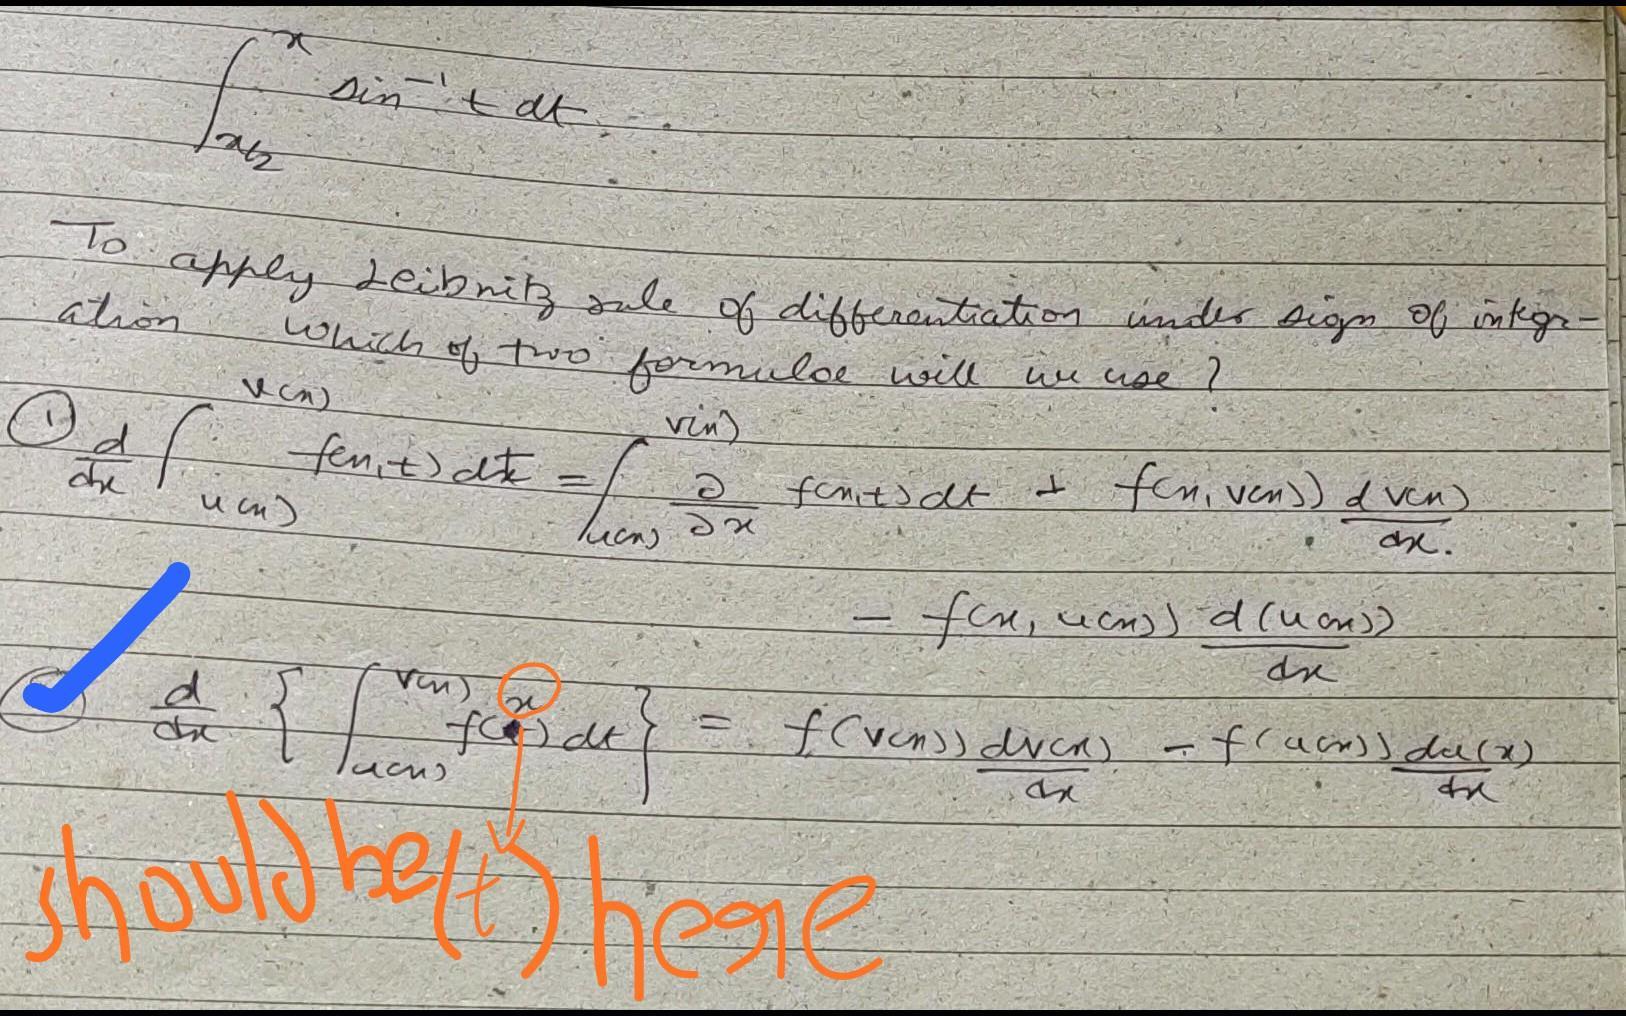 ∫_{x/2}^{x} sin⁻¹ t dt.
To apply Leibnitz rule of differentiation under sign of integr-
ation which of two formulae will we use?
① d/dx ∫_{u(x)}^{v(x)} f(x,t) dt = ∫_{u(x)}^{v(x)} ∂/∂x f(x,t) dt + f(x, v(x)) d v(x)/dx.
− f(x, u(x)) d(u(x))/dx
d/dx { ∫_{u(x)}^{v(x)} f(x) dt } = f(v(x)) dv(x)/dx − f(u(x)) du(x)/dx
should be (t) here